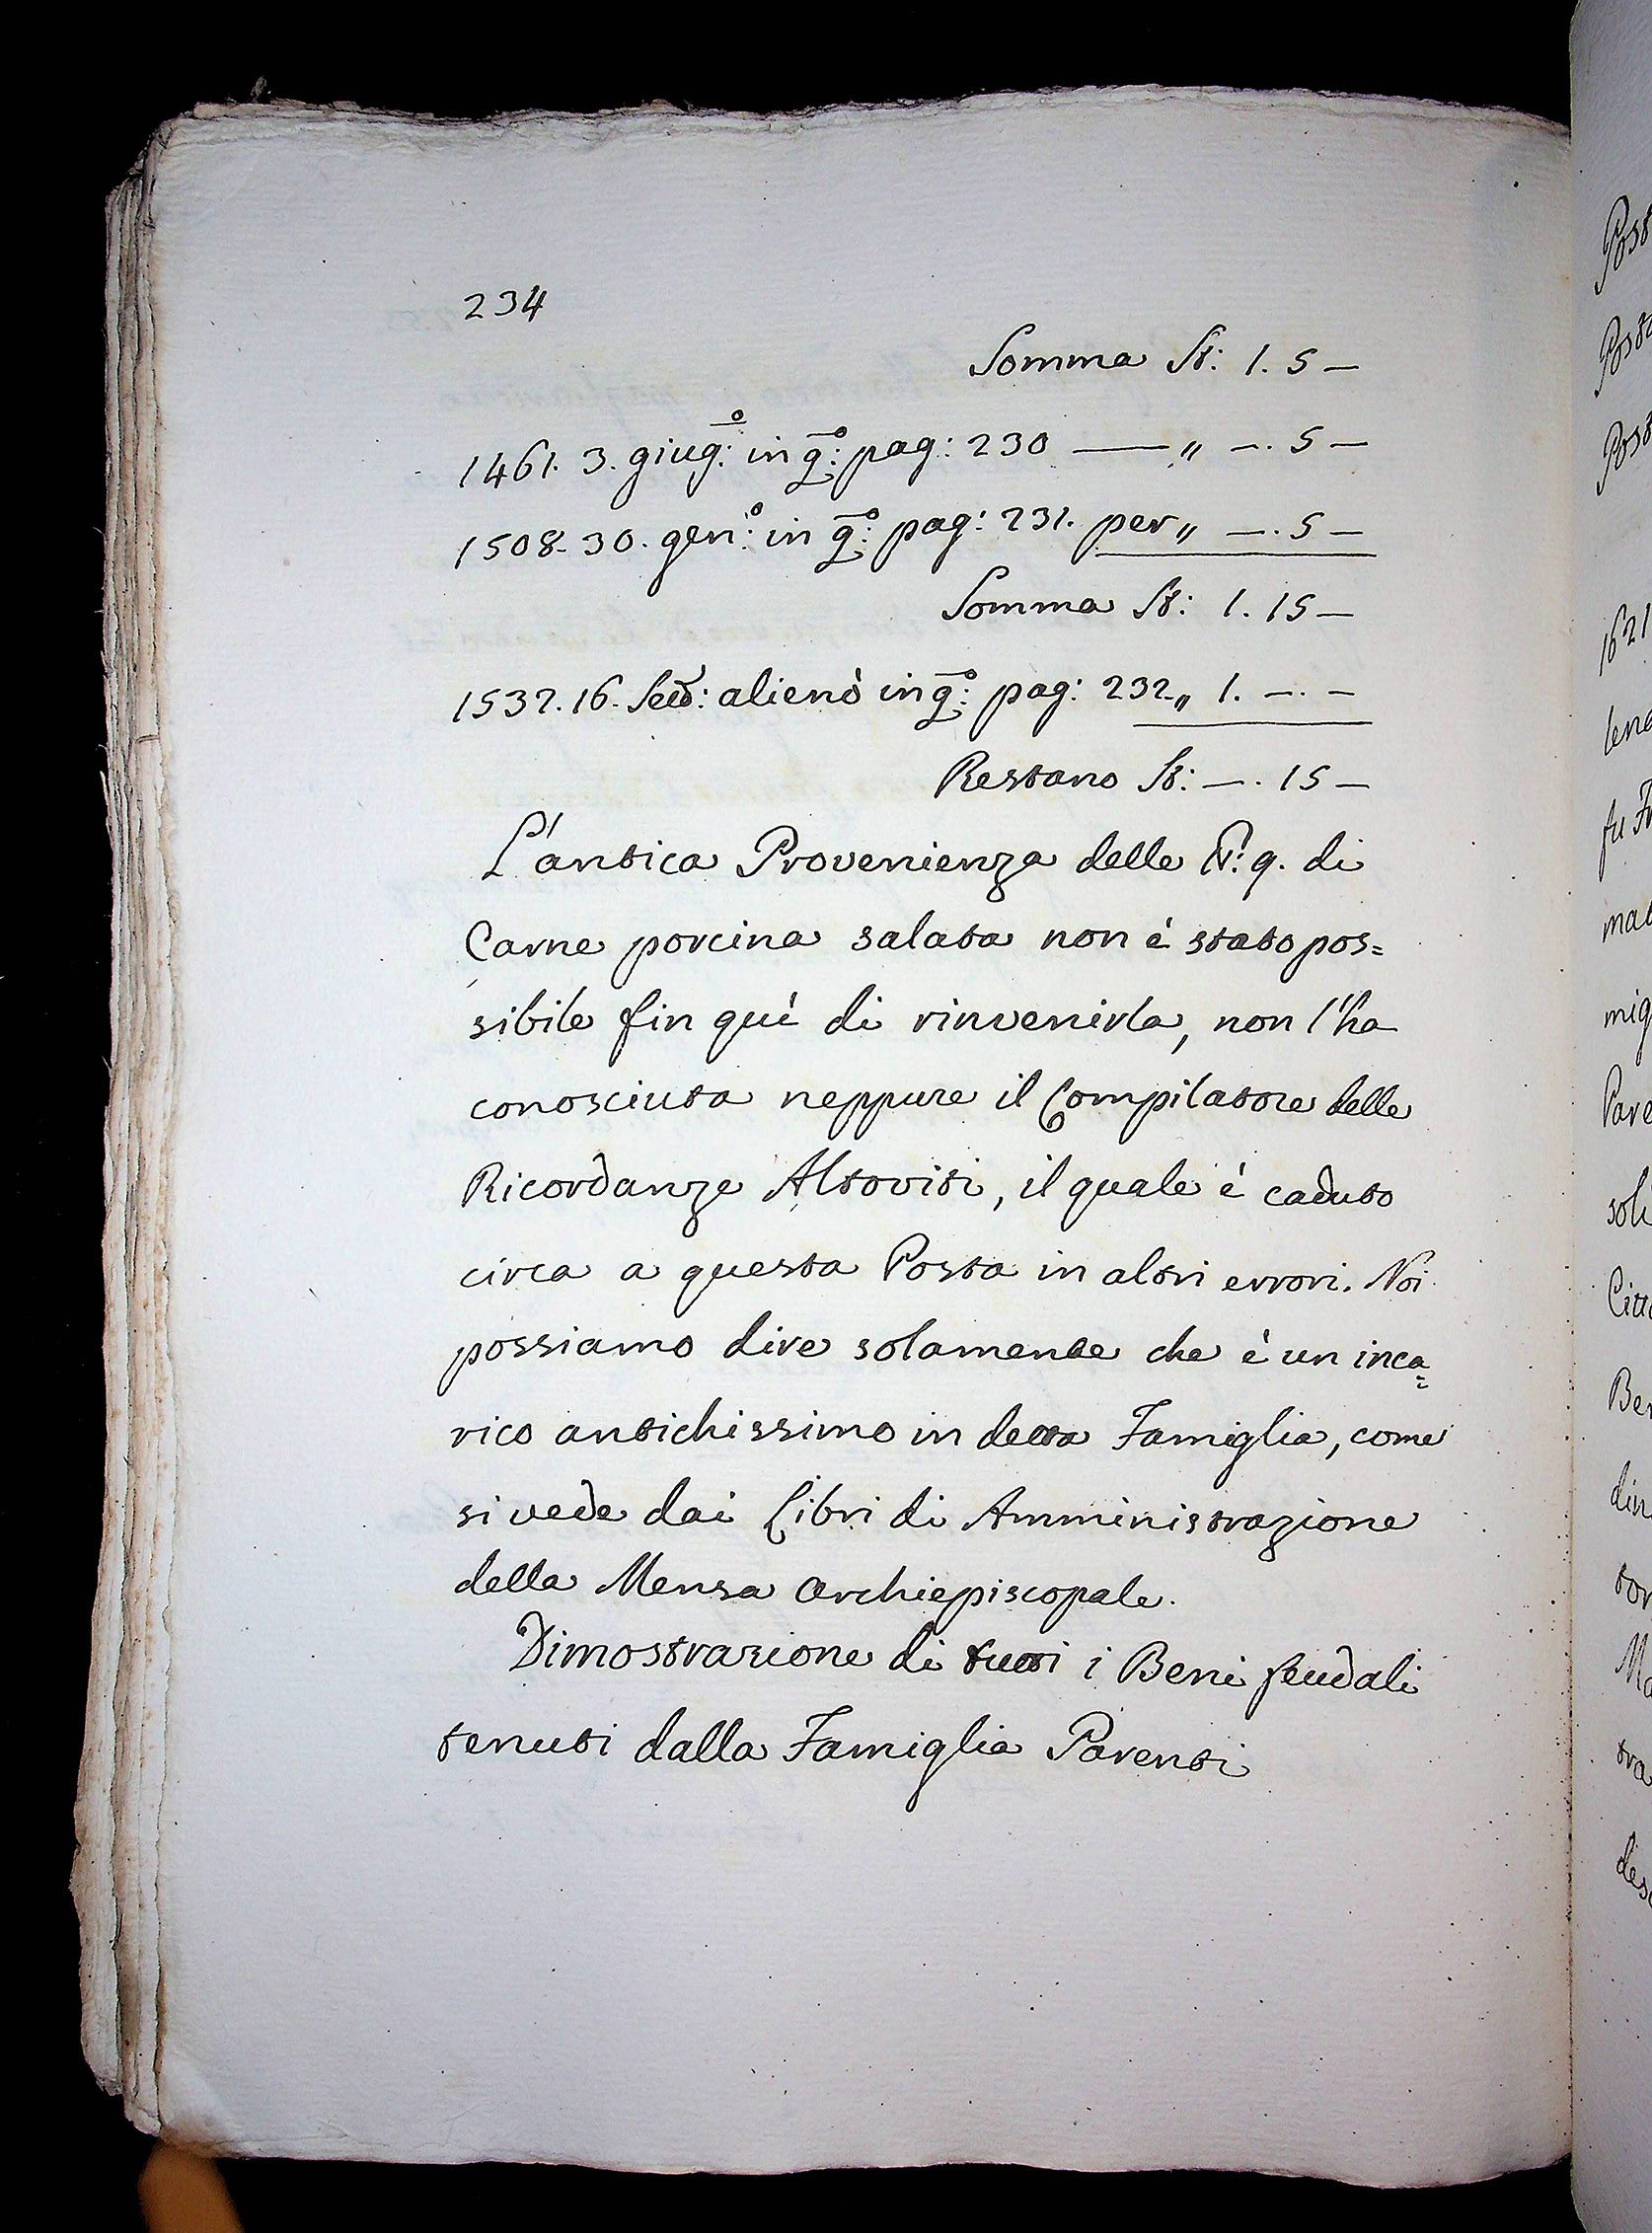 234
Somma St: 1. 5 —
1461. 3. giug:º in q:º pag: 230 —— „ —. 5 —
1508. 30. gen:º in q:º pag: 231. per „ —. 5 —
Somma St: 1. 15 —
1532. 16. Sett: alienò in q:º pag: 232. „ 1. —. —
Restano St: —. 15 —
L'antica Provenienza delle 9. di
Carne porcina salata non è stato pos=
sibile fin quì di rinvenirla, non l'ha
conosciuta neppure il Compilatore delle
Ricordanze Altoviti, il quale è caduto
circa a questa Posta in altri errori. Noi
possiamo dire solamente che è un inca=
rico antichissimo in detta Famiglia, come
si vede dai Libri di Amministrazione
della Mensa Archiepiscopale.
Dimostrazione di tutti i Beni feudali
tenuti dalla Famiglia Parenti